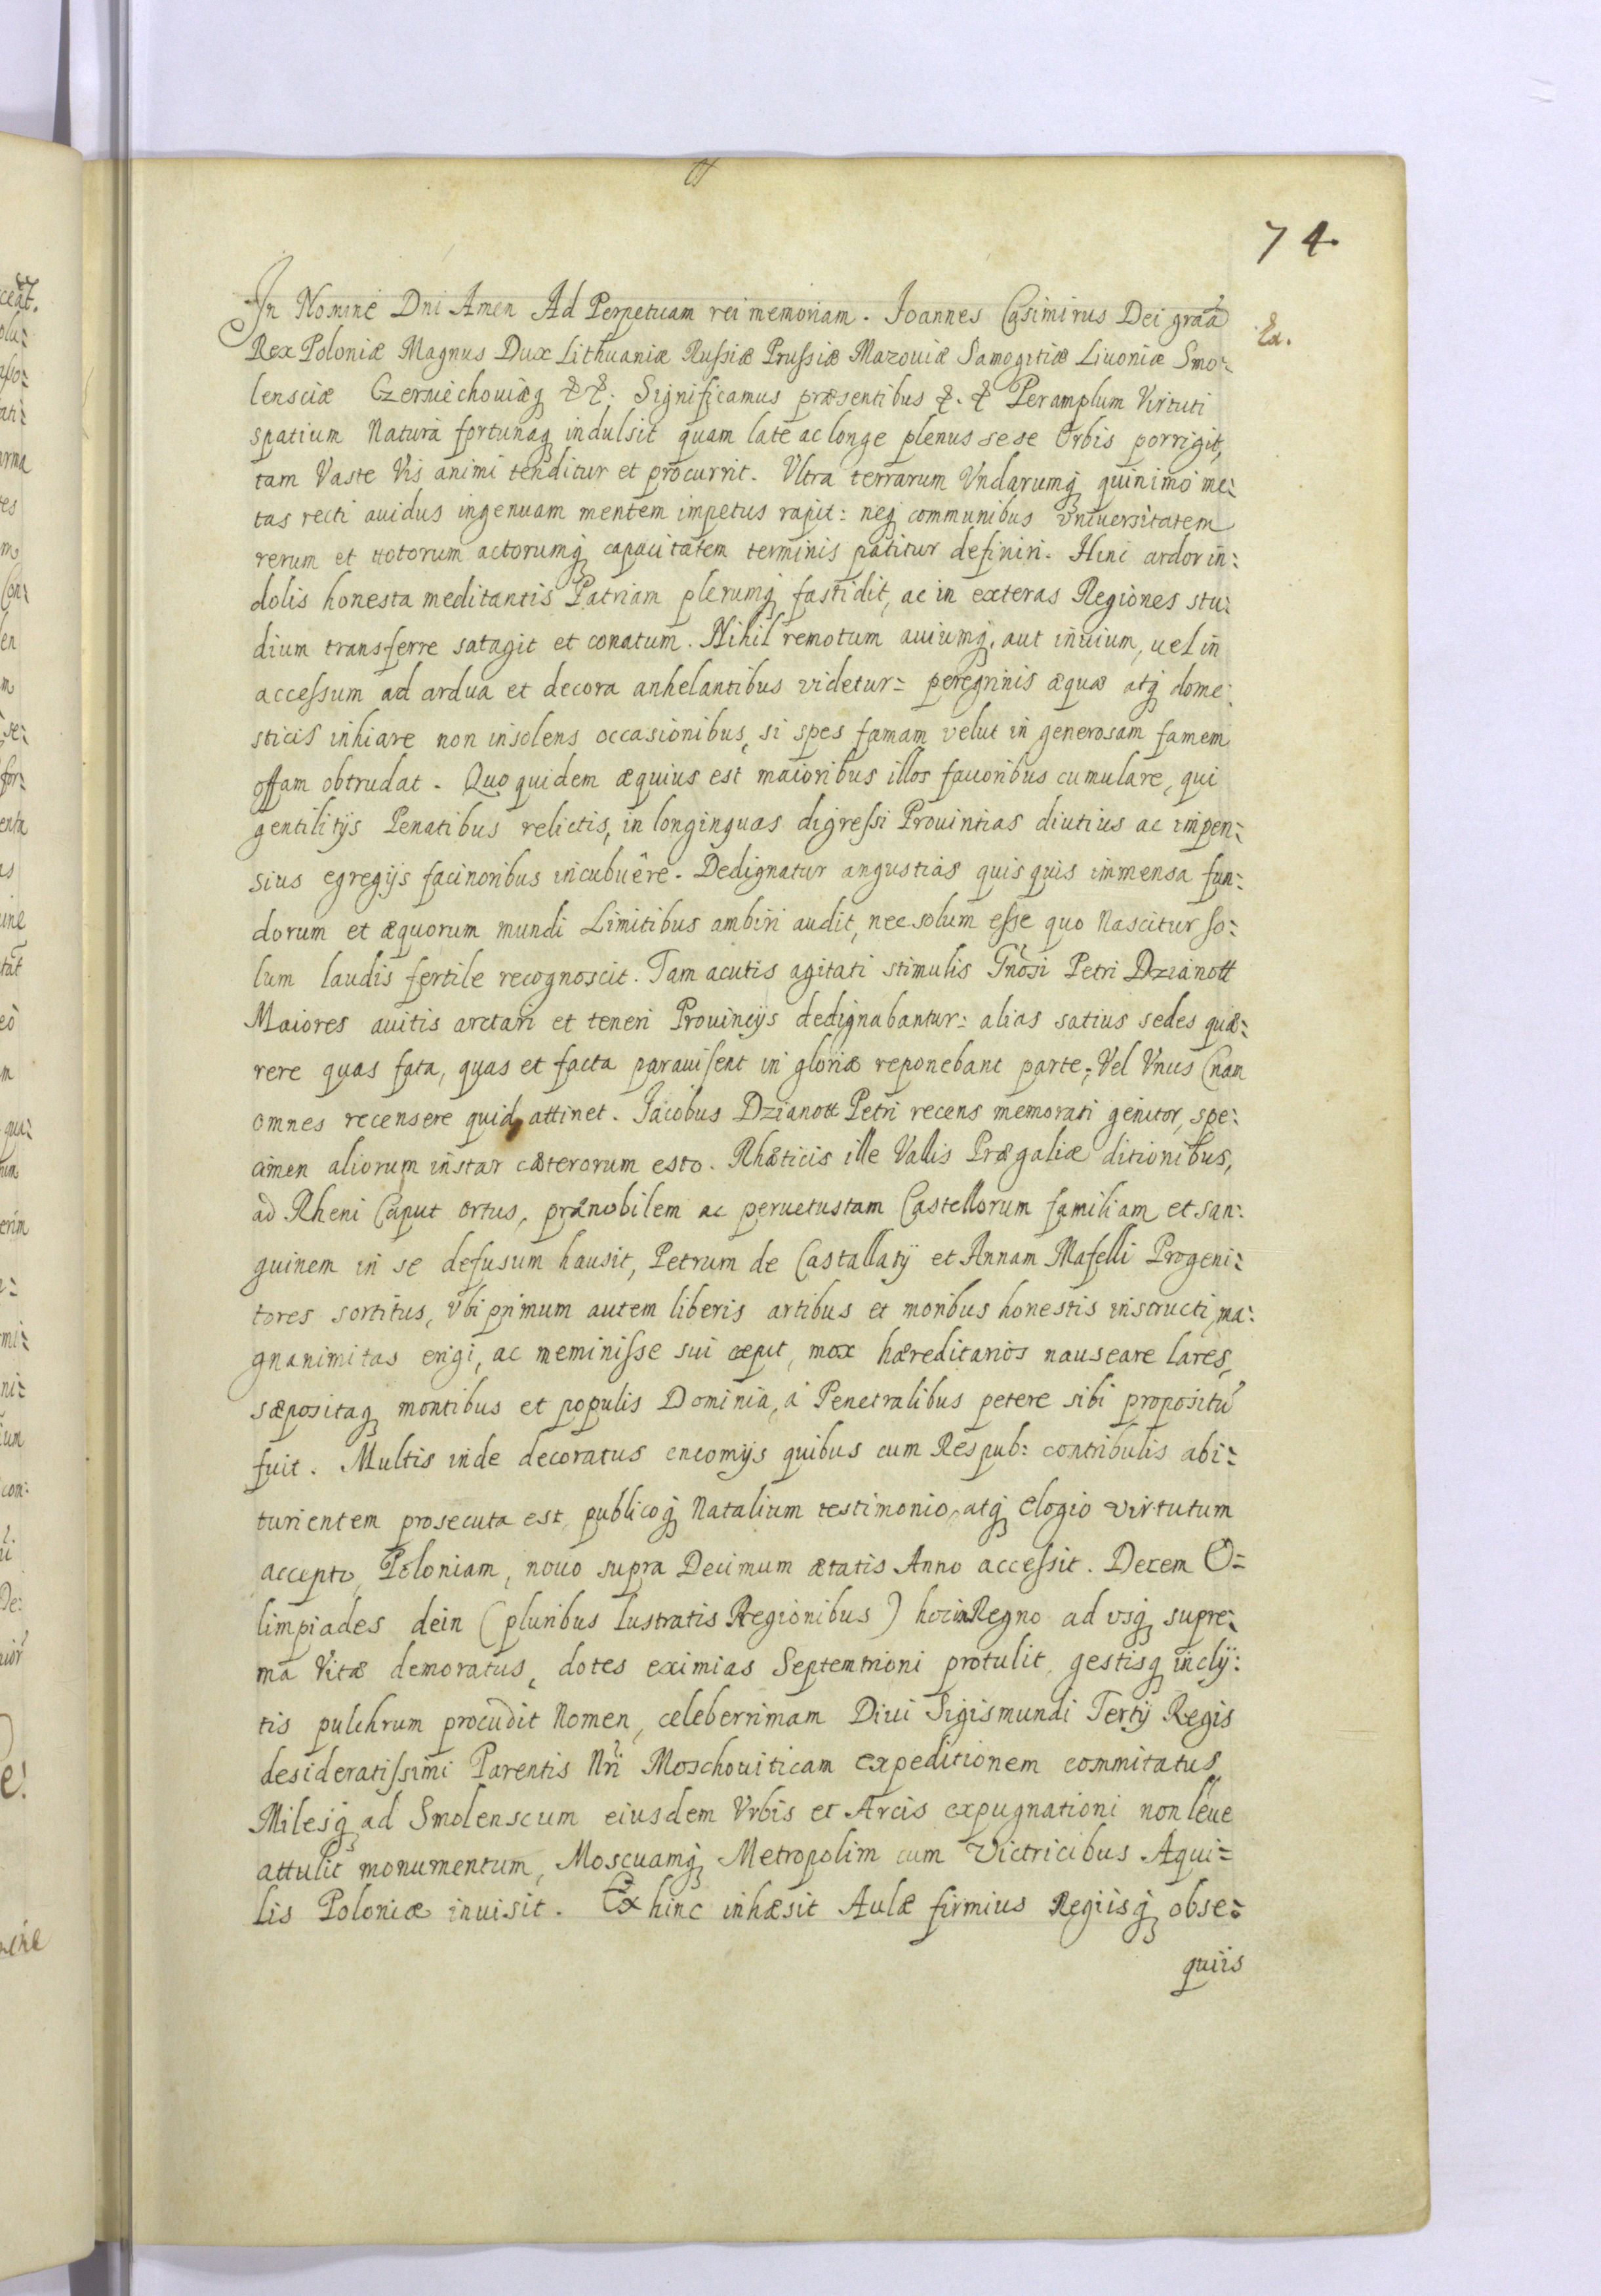 74.
In Nomine Dni Amen Ad Perpetuam rei memoriam. Joannes Casimirus Dei graa
Rex Poloniæ Magnus Dux Lithuaniæ Russiæ Prussiæ Mazouiæ Samogitiæ Liuoniæ Smo=
lensciæ Czerniechouiæq &&. Significamus præsentibus &. & Peramplum Virtuti
spatium Natura fortunaq indulsit quam late ac longe plenus sese Orbis porrigit,
tam Vaste Vis animi tenditur et procurrit. Vltra terrarum Vndarumq quinimò me=
tas recti auidus ingenuam mentem impetus rapit: neq communibus vniuersitatem
rerum et uotorum actorumq capacitatem terminis patitur definiri. Hinc ardor in=
dolis honesta meditantis Patriam plerumq fastidit, ac in exteras Regiones stu=
dium transferre satagit et conatum. Nihil remotum auiumq, aut inuium, uel in
accessum ad ardua et decora anhelantibus videtur: peregrinis æquæ atq dome=
sticis inhiare non insolens occasionibus, si spes famam velut in generosam famem
offam obtrudat. Quo quidem æquius est maioribus illos fauoribus cumulare, qui
gentilitijs Penatibus relictis, in longinquas digressi Prouintias diutius ac impen=
sius egregijs facinoribus incubuêre. Dedignatur angustias quisquis immensa fun=
dorum et æquorum mundi Limitibus ambiri audit, nec solum esse quo Nascitur so=
lum laudis fertile recognoscit. Tam acutis agitati stimulis Gnosi Petri Dzianott
Maiores auitis arctari et teneri Prouincijs dedignabantur: alias satius sedes quæ=
rere quas fata, quas et facta parauissent in gloriæ reponebant parte; Vel Vnus (nam
omnes recensere quid attinet. Jacobus Dzianott Petri recens memorati genitor, spe=
cimen aliorum instar cæterorum esto. Rhæticis ille Vallis Prægaliæ ditionibus,
ad Rheni Caput ortus, prænobilem ac peruetustam Castellorum familiam et san=
guinem in se defusum hausit, Petrum de Castallatÿ et Annam Mafelli Progeni=
tores sortitus, Vbi primum autem liberis artibus et moribus honestis instructi, ma=
gnanimitas erigi, ac meminisse sui cæpit, mox hæreditarios nauseare lares,
sæpositaq montibus et populis Dominia, à Penetralibus petere sibi propositu
fuit. Multis inde decoratus encomijs quibus cum Respub: contribulis abi=
turientem prosecuta est, publicoq Natalium testimonio, atq elogio virtutum
accepto, Poloniam, nouo supra Decimum ætatis Anno accessit. Decem O=
limpiades dein (pluribus lustratis Regionibus) hocin Regno ad vsq supre=
ma Vitæ demoratus, dotes eximias Septentrioni protulit, gestisq inclÿ=
tis pulchrum procudit Nomen, celeberrimam Diui Sigismundi Tertÿ Regis
desideratissimi Parentis Nri Moschouiticam expeditionem commitatus,
Milesq ad Smolenscum eiusdem Vrbis et Arcis expugnationi non leue
attulit monumentum, Moscuamq Metropolim cum Victricibus Aqui=
lis Poloniæ inuisit. Ex hinc inhæsit Aulæ firmius Regiisq obse=
quiis